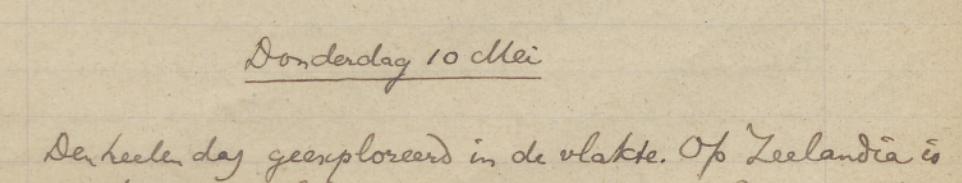 Donderdag 10 Mei
Den heelen dag geexploreerd in de vlakte. Op Zeelandia is